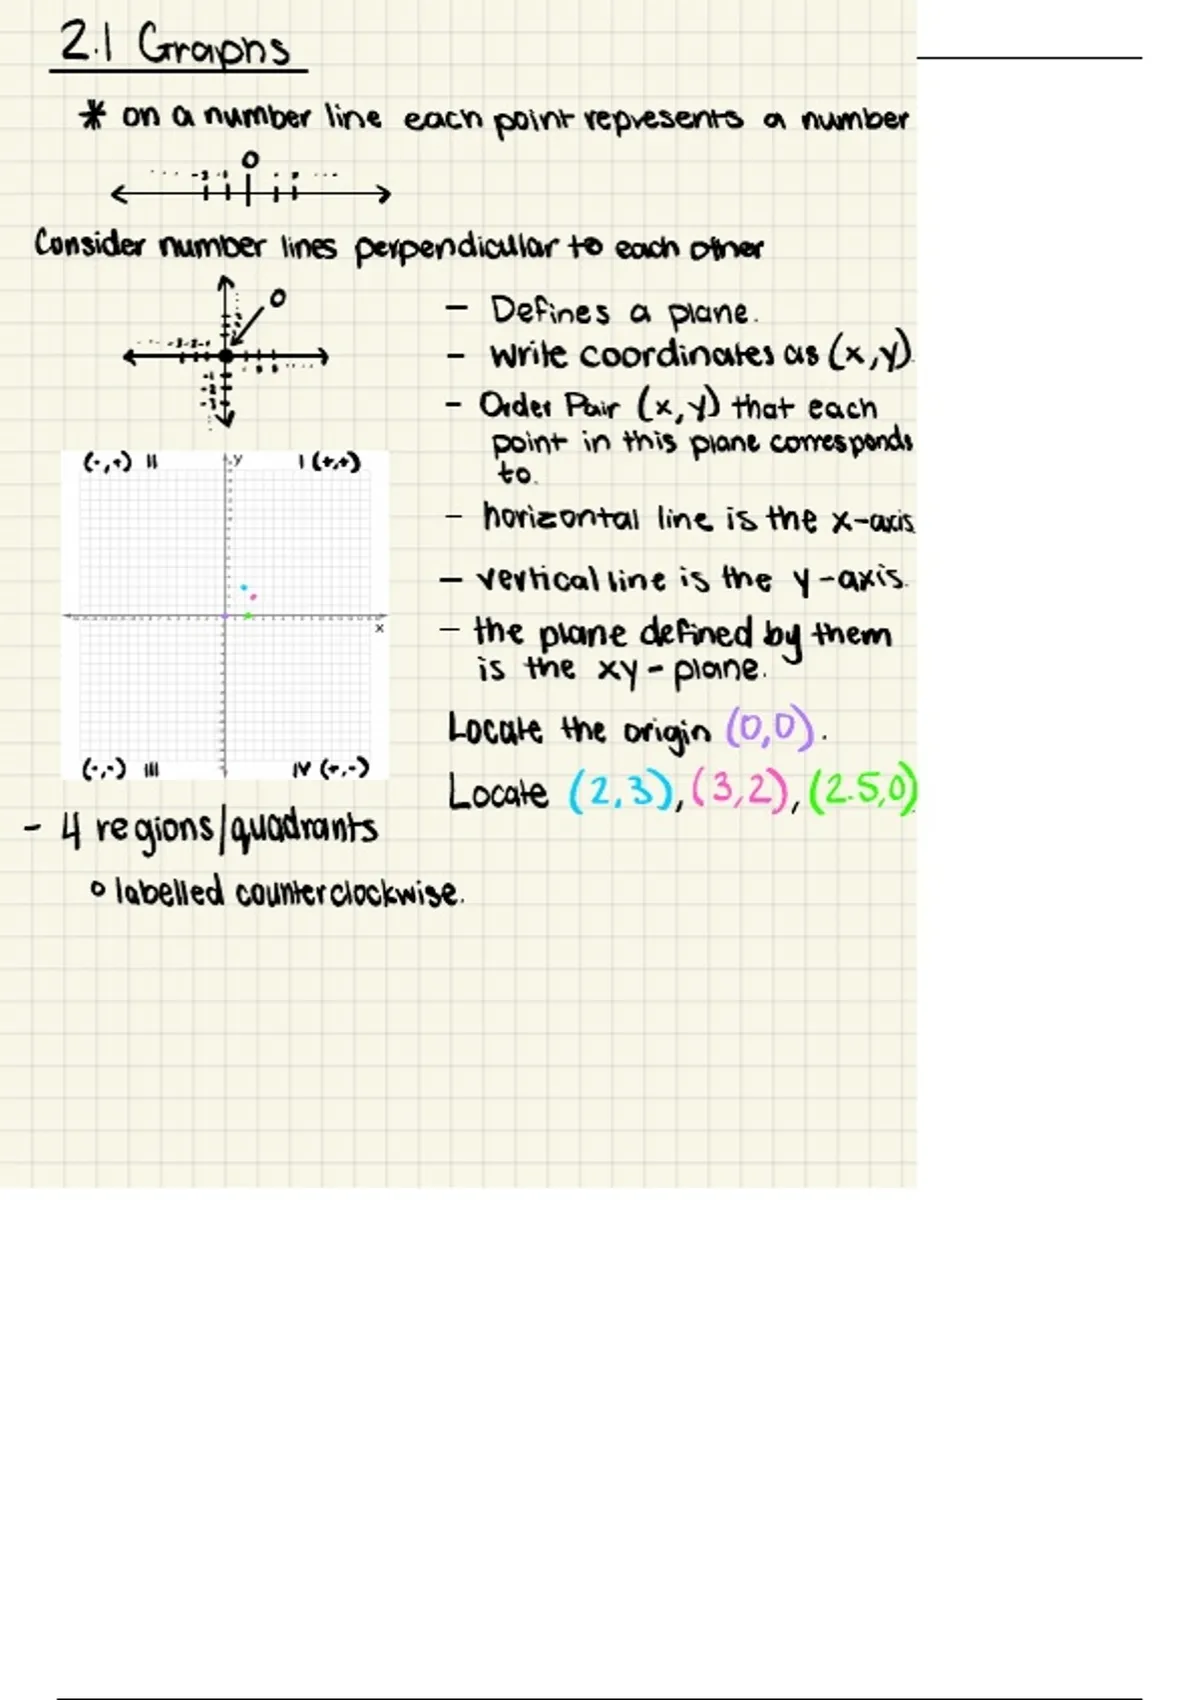 2.1 Graphs
* on a number line each point represents a number
0
Consider number lines perpendicular to each other
0
-3 -2 -1
-1
-2
-3
- Defines a plane.
- Write coordinates as (x,y).
- Order Pair (x,y) that each
point in this plane corresponds
to.
- horizontal line is the x-axis
- vertical line is the y-axis.
- the plane defined by them
is the xy-plane.
Locate the origin (0,0).
Locate (2,3), (3,2), (2.5,0)
(-,+) II
y
I (+,+)
x
(-,-) III
IV (+,-)
- 4 regions/quadrants
o labelled counterclockwise.